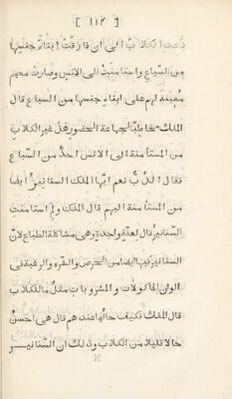 [ ١١٢ ]
دعت الكلاب الى ان فارقت ابناء جنسها
من السباع واستأمنت الى الانس وصارت معهم
معينة لهم على ابناء جنسها من السباع قال
الملك مخاطبا لجماعة الحضور هل غير الكلاب
من المستأمنة الى الانس احد من السباع
فقال الدب نعم ايها الملك السنانير ايضا
من المستأمنة اليهم قال الملك ولم استأمنت
السنانير قال لعلة واحدة وهى مشاكلة الطباع لان
السنانير فيها ايضا من الحرص والشره والرغبة فى
الوان المأكولات والمشروبات مثل ما للكلاب
قال الملك فكيف حالها عندهم قال هى احسن
حالا قليلا من الكلاب وذلك ان السنانير